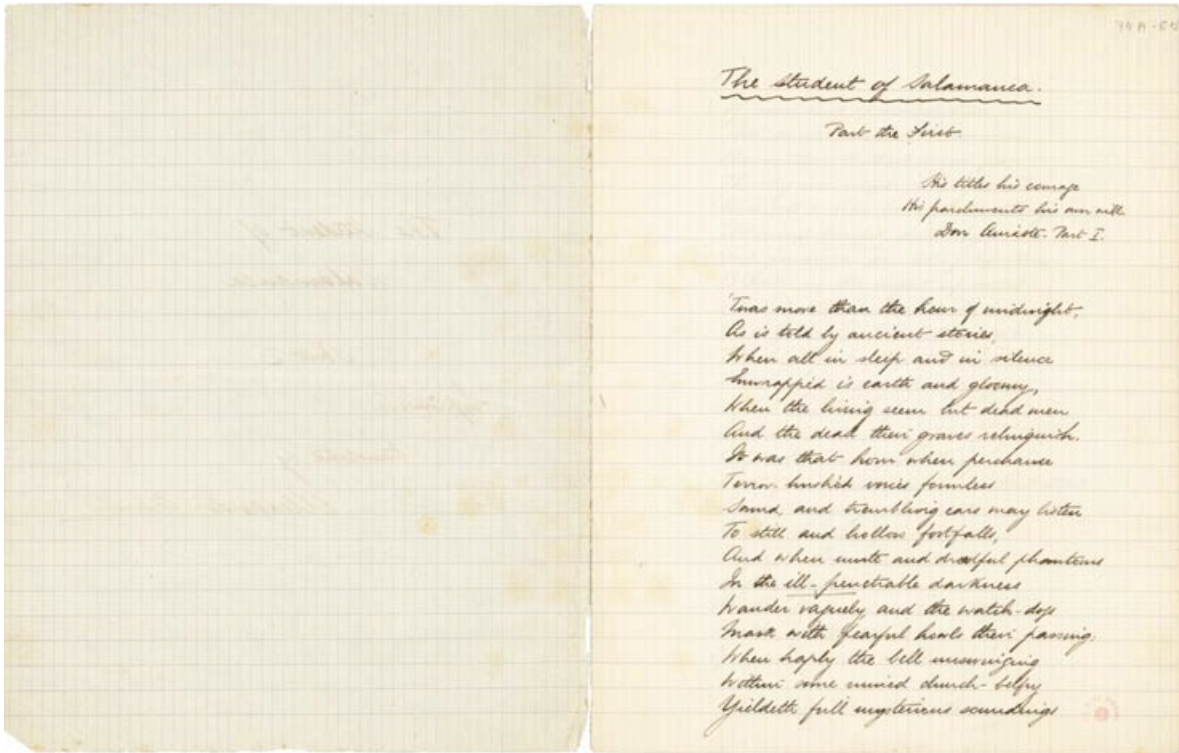 74A-65
The Student of Salamanca.
Part the First.
His titles his courage
His parchments his own will.
Don Quixote. Part I.
'Twas more than the hour of midnight,
As is told by ancient stories,
When all in sleep and in silence
Enwrappèd is earth and gloomy,
When the living seem but dead men
And the dead their graves relinquish.
It was that hour when perchance
Terror-hushèd voices formless
Sound, and trembling ears may listen
To still and hollow footfalls,
And when mute and dreadful phantoms
In the ill-penetrable darkness
Wander vaguely and the watch-dogs
Mark with fearful howls their passing;
When haply the bell unswinging
Within some ruined church-belfry
Yieldeth full mysterious soundings